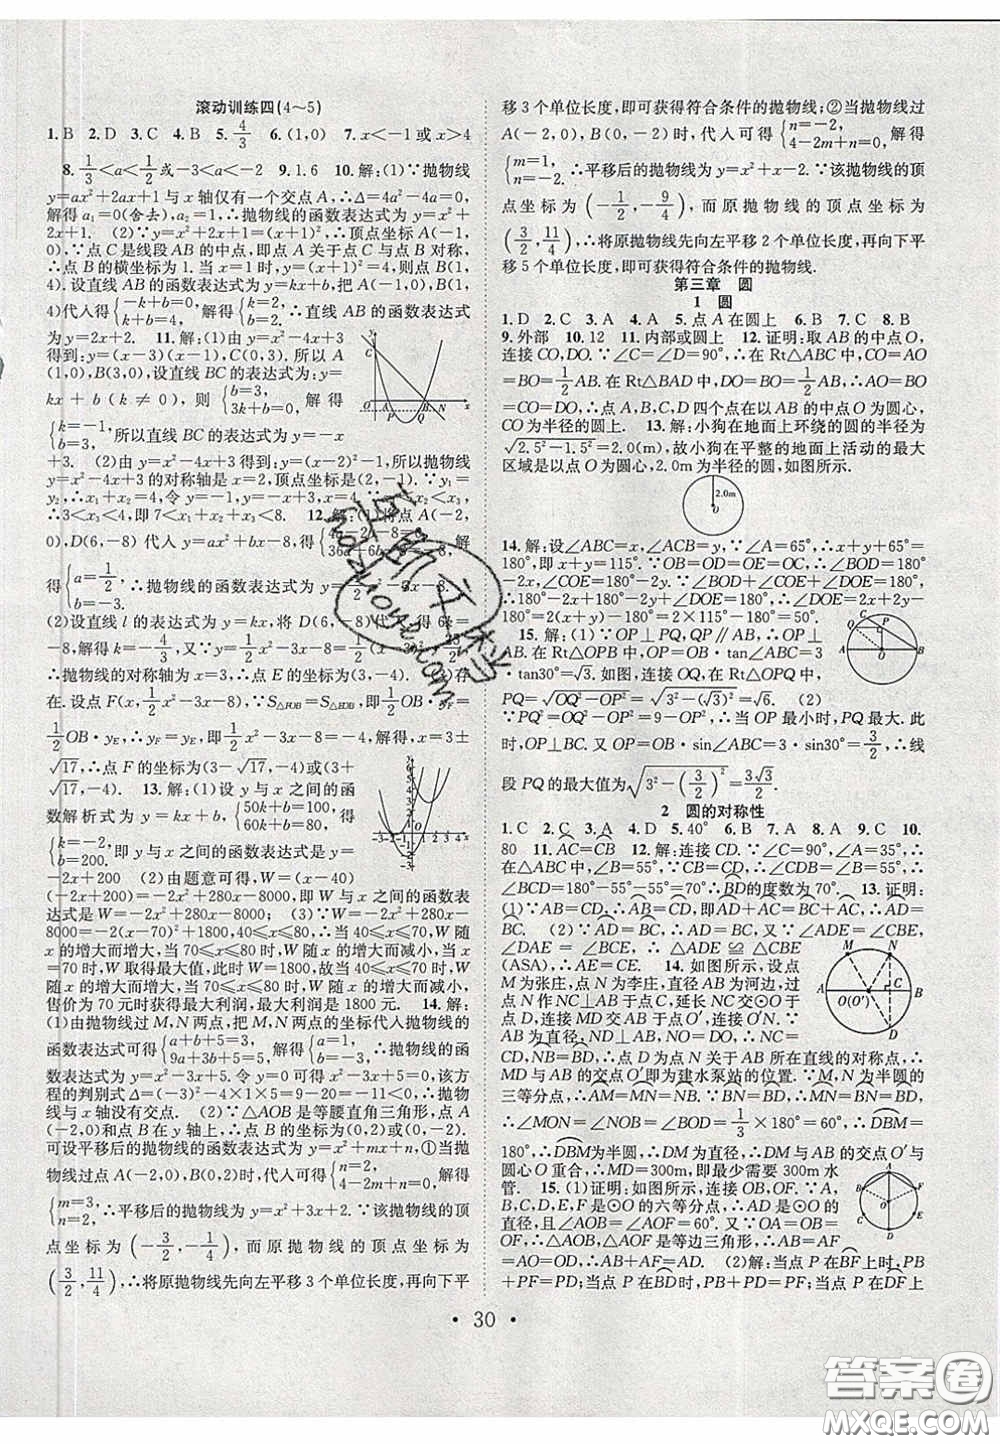 滚动训练四(4～5)
1. B 2. D 3. C 4. B 5. 4/3 6. (1,0) 7. x<-1或x>4
8. 1/3<a<1/2或-3<a<-2 9. 1.6 10. 解:(1)∵抛物线
y=ax²+2ax+1与x轴仅有一个交点A,∴Δ=4a²-4a=0,
解得a₁=0(舍去),a₂=1,∴抛物线的函数表达式为y=x²+
2x+1. (2)∵y=x²+2x+1=(x+1)²,∴顶点坐标A(-1,
0).∵点C是线段AB的中点,即点A关于点C与点B对称,
∴点B的横坐标为1.当x=1时,y=(1+1)²=4,则点B(1,
4).设直线AB的函数表达式为y=kx+b,把A(-1,0),B(1,
4)代入得{-k+b=0, k+b=4,解得{k=2, b=2,∴直线AB的函数表达式
为y=2x+2. 11. 解:(1)由y=x²-4x+3
得到:y=(x-3)(x-1),C(0,3).所以A
(1,0),B(3,0),设直线BC的表达式为:y=
kx+b(k≠0),则{b=3, 3k+b=0,解得
{k=-1, b=3,所以直线BC的表达式为y=-x
+3. (2)由y=x²-4x+3得到:y=(x-2)²-1,所以抛物线
y=x²-4x+3的对称轴是x=2,顶点坐标是(2,-1).∵y₁=
y₂,∴x₁+x₂=4,令y=-1,y=-x+3,x=4.∵x₁<x₂<x₃,
∴3<x₃<4,即7<x₁+x₂+x₃<8. 12. 解:(1)将点A(-2,
0),D(6,-8)代入y=ax²+bx-8,得{4a-2b-8=0, 36a+6b-8=-8,解
得{a=1/2, b=-3.∴抛物线的函数表达式为y=1/2x²-3x-8.
(2)设直线l的表达式为y=kx,将D(6,-8)代入得6k=
-8,解得k=-4/3,又∵y=1/2x²-3x-8=
∴抛物线的对称轴为x=3,∴点E的坐标为(3,-4).(3)存
在.设点F(x,1/2x²-3x-8),∵S△FOB=S△EOB,即1/2OB·yF=
1/2OB·yE,∴yF=yE,即1/2x²-3x-8=-4,解得,x=3±
√17,∴点F的坐标为(3-√17,-4)或(3
+√17,-4). 13. 解:(1)设y与x之间的函
数解析式为y=kx+b,{50k+b=100, 60k+b=80,解得
{k=-2, b=200.即y与x之间的函数表达式是y=
-2x+200 (2)由题意可得,W=(x-40)
(-2x+200)=-2x²+280x-8000,即W与x之间的函数表
达式是W=-2x²+280x-8000; (3)∵W=-2x²+280x-
8000=-2(x-70)²+1800,40≤x≤80,∴当40≤x≤70时,W随
x的增大而增大,当70≤x≤80时,W随x的增大而减小,当
x=70时,W取得最大值,此时W=1800,故当40≤x≤70时,W
随x的增大而增大,当70≤x≤80时,W随x的增大而减小,
售价为70元时获得最大利润,最大利润是1800元. 14. 解:
(1)由抛物线过M,N两点,把M,N两点的坐标代入抛物线的
函数表达式可得{a+b+5=3, 9a+3b+5=5,解得{a=1, b=-3,∴抛物线的函
数表达式为y=x²-3x+5.令y=0可得x²-3x+5=0,该方
程的判别式Δ=(-3)²-4×1×5=9-20=-11<0,∴抛物
线与x轴没有交点. (2)∵△AOB是等腰直角三角形,点A
(-2,0)和点B在y轴上,∴点B的坐标为(0,2)或(0,-2).
可设平移后的抛物线的函数表达式为y=x²+mx+n,①当抛
物线过点A(-2,0),B(0,2)时,代入可得{n=2, 4-2m+n=0,解得
{m=3, n=2,∴平移后的抛物线为y=x²+3x+2.∵该抛物线的顶
点坐标为(-3/2,-1/4),而原抛物线的顶点坐标为
(3/2,11/4),∴将原抛物线先向左平移3个单位长度,再向下平
移3个单位长度,即可获得符合条件的抛物线;②当抛物线过
A(-2,0),B(0,-2)时,代入可得{n=-2, 4-2m+n=0,解得
{m=1, n=-2.∴平移后的抛物线为y=x²+x-2.∵该抛物线的顶
点坐标为(-1/2,-9/4),而原抛物线的顶点坐标为
(3/2,11/4),∴将原抛物线先向左平移2个单位长度,再向下平
移5个单位长度,即可获得符合条件的抛物线.
第三章 圆
1 圆
1. D 2. C 3. A 4. A 5. 点A在圆上 6. B 7. C 8. B
9. 外部 10. 12 11. 内部或圆上 12. 证明:取AB的中点O,
连接CO,DO.∵∠C=∠D=90°,∴在Rt△ABC中,CO=AO
=BO=1/2AB.在Rt△BAD中,DO=BO=1/2AB,∴AO=BO
=CO=DO,∴点A,B,C,D四个点在以AB的中点O为圆心,
CO为半径的圆上. 13. 解:小狗在地面上环绕的圆的半径为
√2.5²-1.5²=2.0(m),故小狗在平整的地面上活动的最大
区域是以点O为圆心,2.0m为半径的圆,如图所示.
2.0m
O
14. 解:设∠ABC=x,∠ACB=y,∵∠A=65°,∴x+y+65°=
180°,即x+y=115°.∵OB=OD=OE=OC,∴∠BOD=
180°-2x,∠COE=180°-2y.∵∠BOD+∠COE+∠DOE=
180°,∴180°-2x+180°-2y+∠DOE=180°,∴∠DOE=2x+2y-
180°=2(x+y)-180°=2×115°-180°=50°.
15. 解:(1)∵OP⊥PQ,QP∥AB,∴OP⊥
AB.在Rt△OPB中,OP=OB·tan∠ABC=3
·tan30°=√3.连接OQ,在Rt△OPQ中,
PQ=√OQ²-OP²=√3²-(√3)²=√6. (2)
∵PQ²=OQ²-OP²=9-OP²,∴当OP最小时,PQ最大.此
时,OP⊥BC.又OP=OB·sin∠ABC=3·sin30°=3/2,∴线
段PQ的最大值为√3²-(3/2)²=3√3/2.
2 圆的对称性
1. C 2. C 3. A 4. D 5. 40° 6. B 7. A 8. A 9. C 10.
80 11. AC=CB 12. 解:连接CD.∵∠C=90°,∠A=35°,
在△ABC中,∴∠B=55°.∵CB=CD,∴∠CDB=∠B=55°,
∠BCD=180°-55°-55°=70°,∴BD的度数为70°. 13. 证明:
(1)∵AB=CD,∴AB=CD,即AD+AC=BC+AC,∴AD=
BC. (2)∵AD=BC,∴AD=BC,又∵∠ADE=∠CBE,
∠DAE=∠BCE,∴△ADE≌△CBE
(ASA),∴AE=CE. 14. 如图所示,设点
M为张庄,点N为李庄,直径AB为河边,过
点N作NC⊥AB于点C,延长NC交⊙O于
点D,连接MD交AB于点O',连接BD.∵
AB为直径,DN⊥AB,∴CN=
CD,NB=BD,∴点D为点N关于AB所在直线的对称点,∴
MD与AB的交点O'即为建水泵站的位置.∵M,N为半圆的
三等分点,∴AM=MN=NB=BD=1/3×180°=60°,∴DBM=
180°,∴DBM为半圆,∴MD为直径,∴MD与AB的交点O'与
圆心O重合,∴MD=300m,即最少需要300m水
管. 15. (1)证明:如图所示,连接OB,OF.∵A,
B,C,D,E,F是⊙O的六等分点,∴AD是⊙O的
直径,且∠AOB=∠AOF=60°.又∵OA=OB,
OA=OF,∴△AOB,△AOF是等边三角形,∴AB=
AF=AO=OD,∴AB+AF=AO+OD=AD.
(2)解:当点P在BF上时,PB+PF=AD;当点P在BD上时,PB+PF>AD;当点P在DF上时,
30
答案圈
MXQE.COM